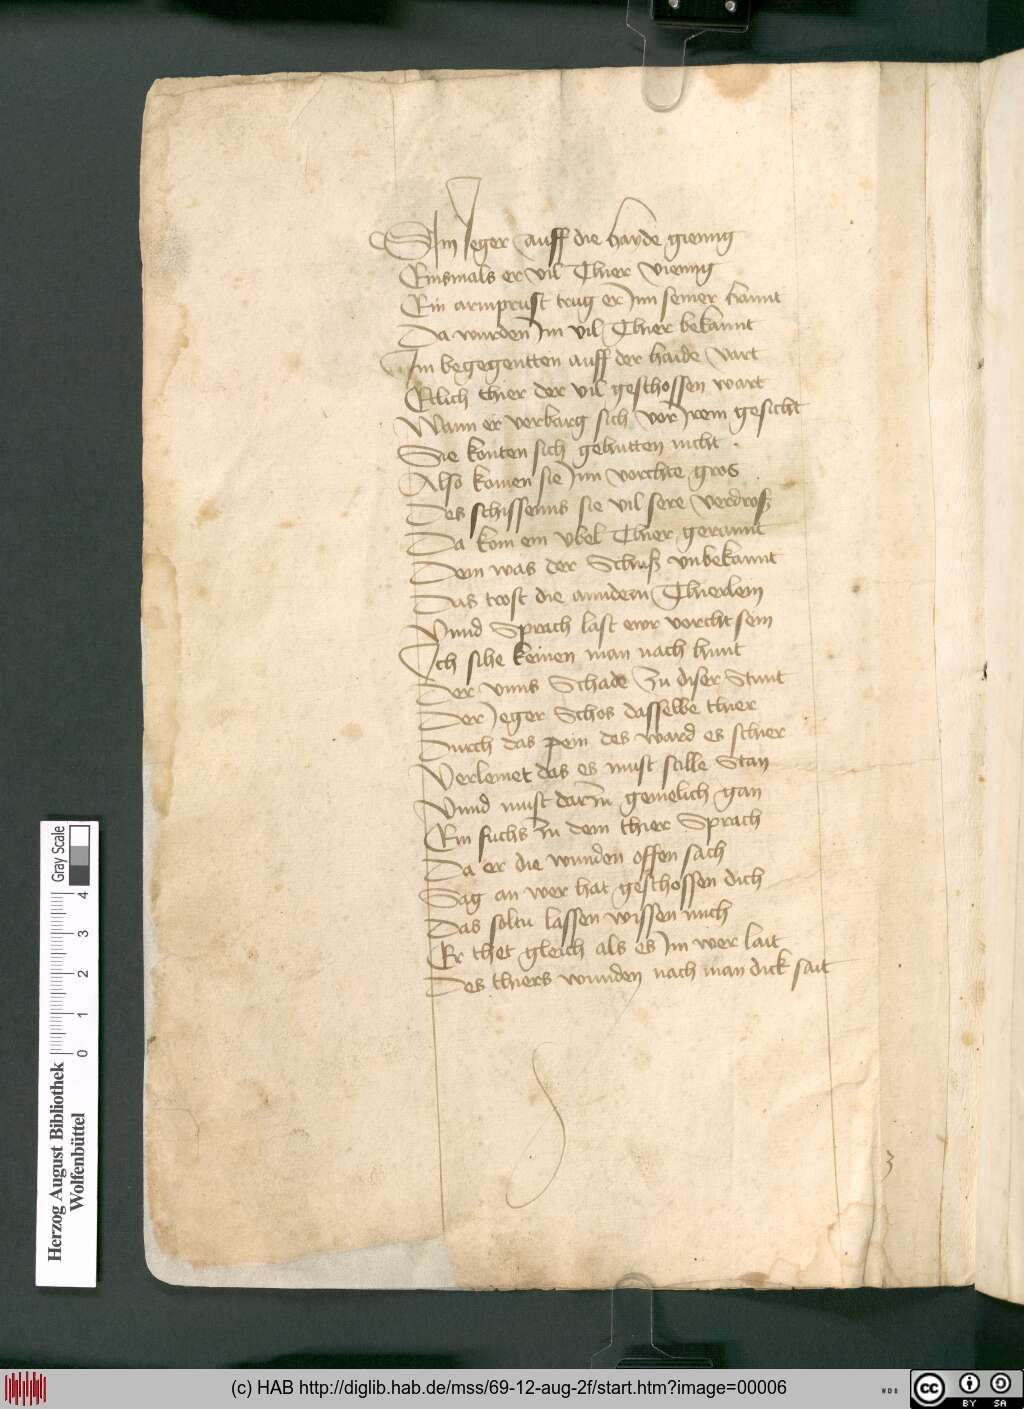 Ein Jeger auff die hayde gienng
Einsmals er vil Thier vienng
Ein armprust trug er Jnn seiner hannt
Da wurden Jm vil Thier bekannt
Jm begegentten auff der haide vart
Etlich thier der vil geschossen wart
Wann er verbarg sich vor Jrem gesicht
Sie konten sich gehutten nicht .
Also komen sie Jnn vorchte gros
Des schissenns sie vil sere verdroß
Da kom ein vbel Thier gerannt
Dem was der Schuß vnbekannt
Das trost die anndern Thierlein
Vnnd Sprach last ewr vorcht sein
Jch sihe keinen man nach hunt
Der vnns Schade zu diser Stunt
Der Jeger Schos dasselbe thier
Durch das pein des ward es schier
Verlemet das es must stille Stan
Vnnd must darzu gemelich gan
Ein fuchs zu dem thier Sprach
Da er die wunden offen sach
Sag an wer hat geschossen dich
Das soltu lassen wissen mich
Er thet gleich als es Jm wer lait
Des thiers wunden nach man dick sait
3
Herzog August Bibliothek
Wolfenbüttel
0 1 2 3 4
Gray Scale
(c) HAB http://diglib.hab.de/mss/69-12-aug-2f/start.htm?image=00006
WDB
cc BY SA